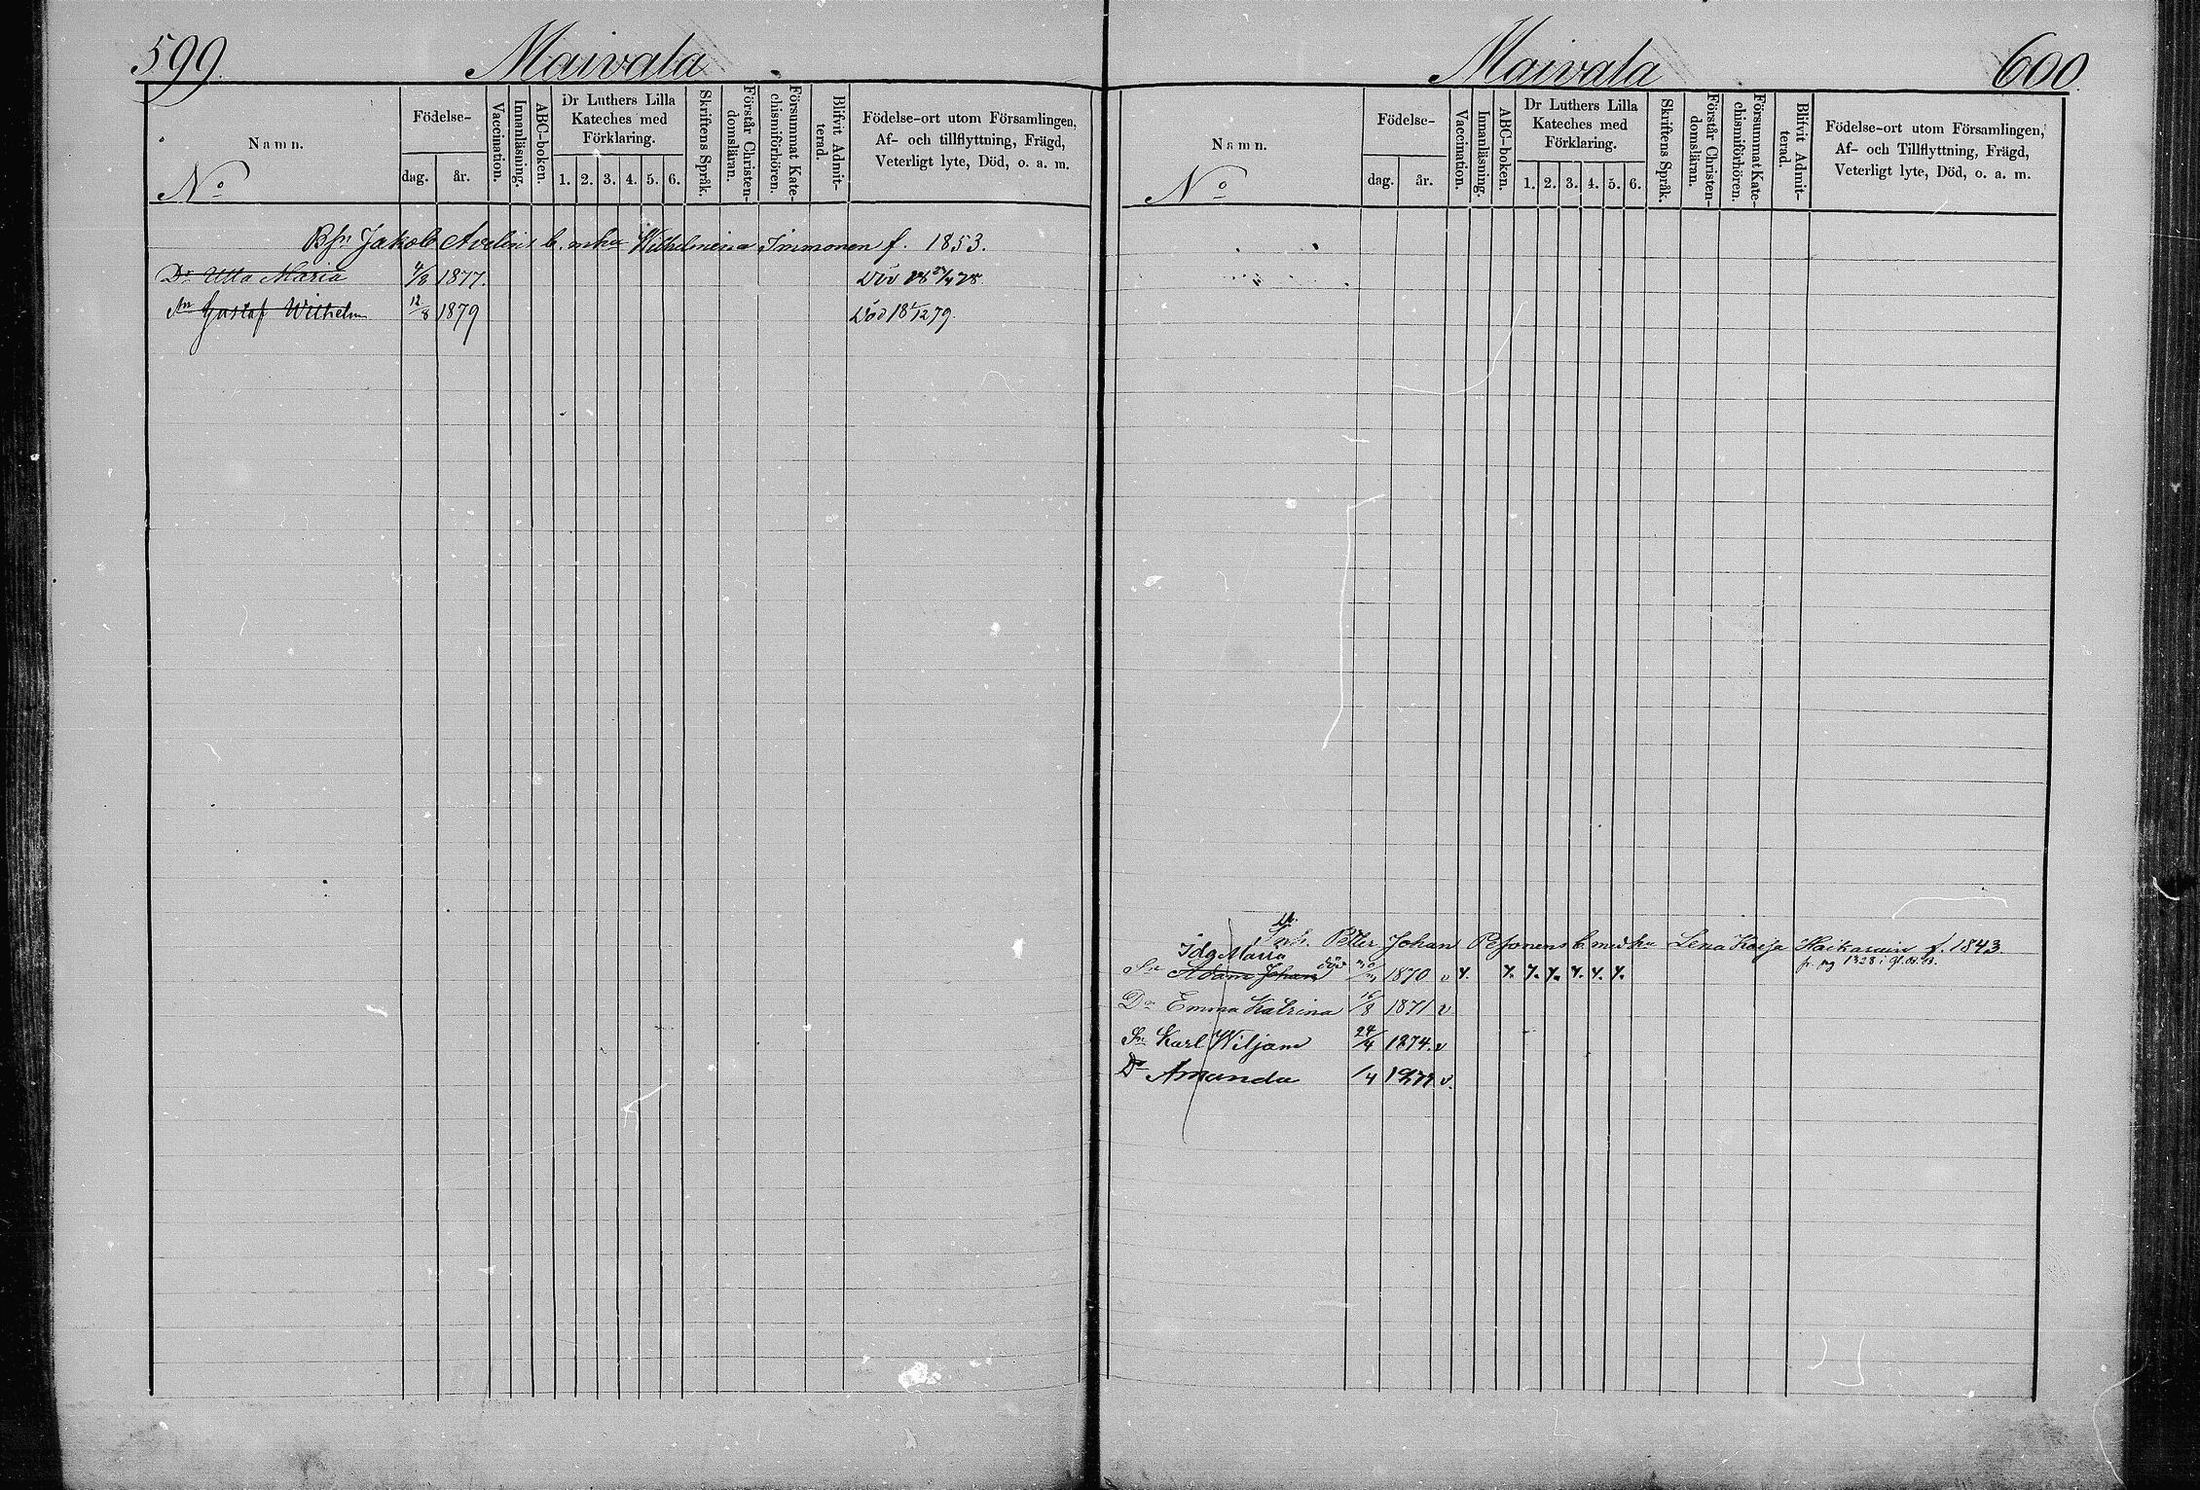 599.
Maivala
Namn.
No
Födelse-
dag.
år.
Vaccination.
Innanläsning.
ABC-boken.
Dr Luthers Lilla
Kateches med
Förklaring.
1. 2. 3. 4. 5. 6.
Skriftens Språk.
Förstår Christen-
domsläran.
Försummat Kate-
chismiförhören.
Blifvit Admit-
terad.
Födelse-ort utom Församlingen,
Af- och tillflyttning, Frägd,
Veterligt lyte, Död, o. a. m.
Jakob b. m. hu Wilhelmina Immonen f. 1853.
Dr Ulla Maria 4/8 1877.
Sn Gustaf Wilhelm 12/8 1879 Död 18 1/12 79.
Maivala
600.
Namn.
No
Födelse-
dag.
år.
Vaccination.
Innanläsning.
ABC-boken.
Dr Luthers Lilla
Kateches med
Förklaring.
1. 2. 3. 4. 5. 6.
Skriftens Språk.
Förstår Christen-
domsläran.
Försummat Kate-
chismiförhören.
Blifvit Admit-
terad.
Födelse-ort utom Församlingen,
Af- och Tillflyttning, Frägd,
Veterligt lyte, Död, o. a. m.
Petter Johan Pesonens b. med hu Lena Kaisa f. 1843.
Ida Maria
Sn Adam Johan 1870 v
Dr Emma Katrina 16/8 1871 v
Sn Karl Wiljam 24/4 1874. v
Dr Amanda